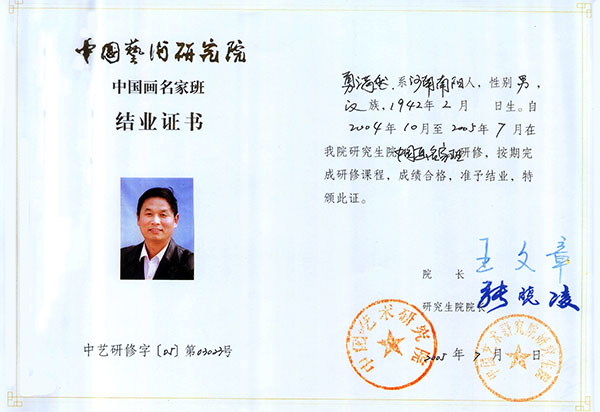 中國藝術研究院
中国画名家班
结业证书
中艺研修字〔05〕第03023号
勇 系河南南阳人，性别男，
汉族，1942年2月 日生。自
2004年10月至2005年7月在
我院研究生院中国画名家班研修，按期完
成研修课程，成绩合格，准予结业，特
颁此证。
院 长 王文章
研究生院院长 张晓凌
2005年7月 日
中国艺术研究院
中国艺术研究院研究生院